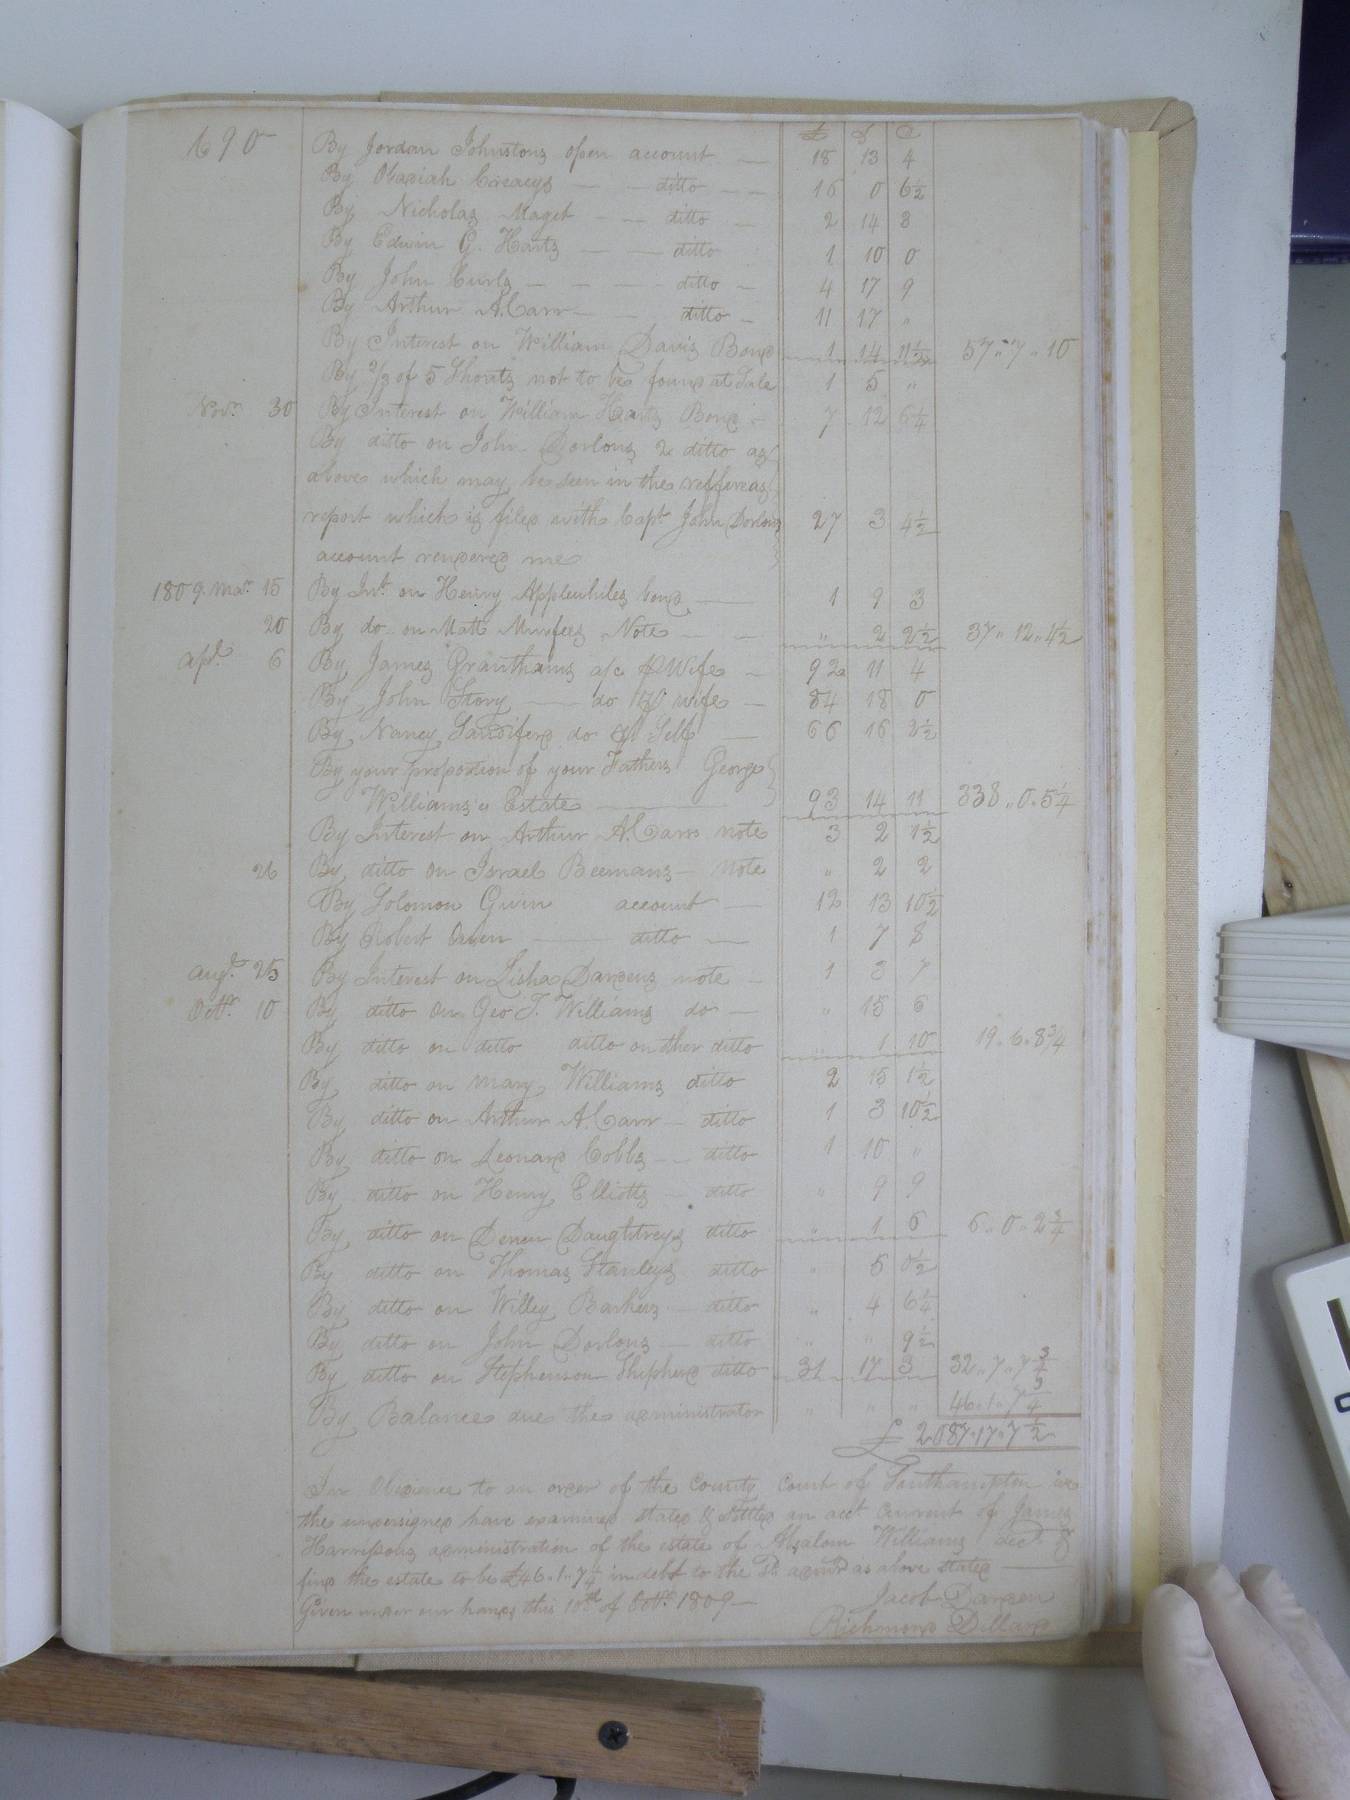 690 £ S D
By Jordan Johnstons open account — 18 13 4
By Obadiah — — ditto — — 16 0 6½
By Nicholas Maget — — ditto — 2 14 8
By Edwin G. Harts — — ditto 1 10 0
By John Curls — — — ditto — 4 17 9
By Arthur A. Carr — — ditto — 11 17 "
By Interest on William Davis Bond 1 14 11½ 57 " 7 " 10
By of 5 not to be found at Sale 1 5 "
Novr. 30 By Interest on William Harts Bond — 7 12 6¼
By ditto on John Dorlons 2 ditto as
above which may be seen in the reffereas
report which is filed with Capt John Dorlons 27 3 4½
account rendered me
1809. Mar. 15 By Int. on Henry Applewhites bond — 1 9 3
20 By do. on Matt Murfees Note — — " 2 2½ 37 " 12 " 4½
apl. 6 By James Granthams a/c Wife — 92 11 4
By John Story — do wife — 84 18 0
By Nancy Sandifers do Self — 66 16 3½
By your proportion of your Fathers George
Williams's Estate — 93 14 11 338 " 0 " 5¼
By Interest on Arthur A. Carrs note 3 2 1½
26 By ditto on Israel Beemans — note " 2 2
By Solomon Gwin account — 12 13 10½
By Robert — ditto — 1 7 8
augt. 25 By Interest on Lisha Dardens note — 1 3 7
Octr. 10 By ditto on Geo T. Williams do — " 15 6
By ditto on ditto ditto on ther ditto " 1 10 19 " 6 " 8¾
By ditto on Mary Williams ditto 2 15 1½
By ditto on Arthur A. Carr — ditto 1 3 10½
By ditto on Leonard Cobbs — ditto 1 10 "
By ditto on Henry Elliotts — ditto " 9 9
By ditto on Daughtreys ditto " 1 6 6 " 0 " 2¾
By ditto on Thomas Stanleys ditto " 5 0½
By ditto on Willey Barkers — ditto " 4 6¼
By ditto on John Dorlons — ditto " " 9½
By ditto on Stephenson Shipherd ditto 31 17 3 32 " 7 " 7¾
By Balance due the administrator " " " 46 " 1 " 7¾
£ 2087 " 17 " 7½
In Obedience to an order of the County Court of Southampton we
the undersigned have examined stated & Settled an acct Current of James
Harrisons administration of the estate of Absalom Williams decd. &
find the estate to be £46 " 1 " 7¾ indebt to the sd. admr as above stated —
Given under our hands this 10th of Octr. 1809 —
Jacob Darden
Richmond Dillard